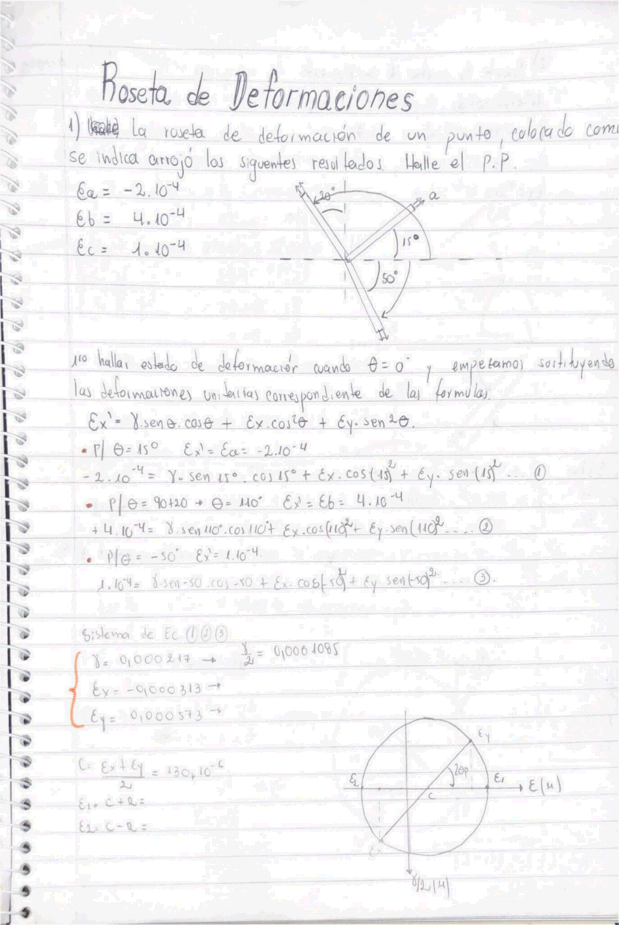 Roseta de Deformaciones
1) La roseta de deformación de un punto, colocado como
se indica arrojó los siguentes resultados. Halle el P.P.
Ea = -2.10⁻⁴
Eb = 4.10⁻⁴
Ec = 1.10⁻⁴
20°
a
15°
50°
1ro hallar estado de deformación cuando θ=0° y empezamos sustituyendo
las deformaciones unitarias correspondiente de las formulas.
Ex' = γ.senθ.cosθ + Ex.cos²θ + Ey.sen2θ.
• P/ θ = 15° Ex' = Ea = -2.10⁻⁴
-2.10⁻⁴ = γ.sen 15°.cos 15° + Ex.cos(15)² + Ey.sen(15)² ... ①
• P/ θ = 90+20 → θ = 110° Ex' = Eb = 4.10⁻⁴
+4.10⁻⁴ = γ.sen110°.cos110+ Ex.cos(110)² + Ey.sen(110)² .... ②
• P/ θ = -50° Ex' = 1.10⁻⁴
1.10⁻⁴ = γ.sen-50.cos-50 + Ex.cos(-50)² + Ey.sen(-50)² .... ③.
Sistema de Ec ① ② ③
γ = 0,000217 → γ/2 = 0,0001085
Ex = -0,000313 →
Ey = 0,000573 →
C = Ex + Ey / 2 = 130.10⁻⁶
E1 = C+R =
E2 = C-R =
Ey
2θp
E2
E1
E(μ)
C
γ/2(μ)